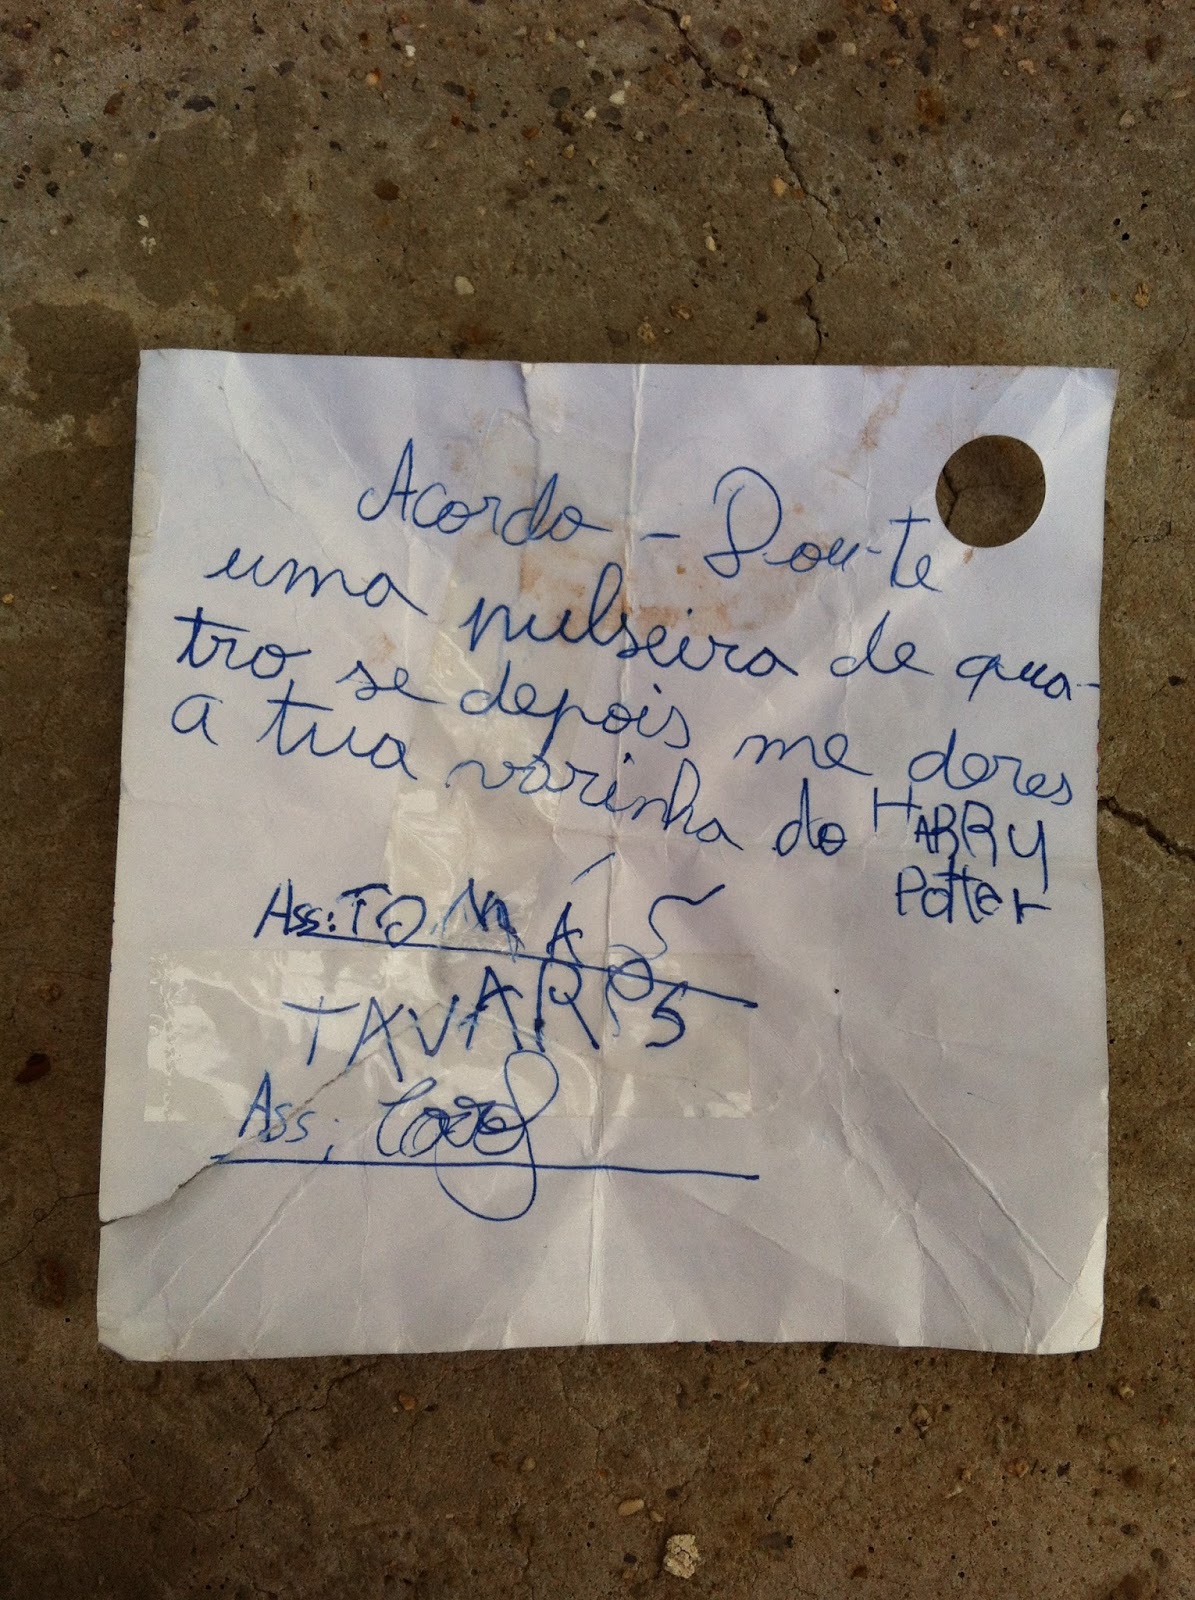 Acordo - Dou-te
uma pulseira de qua-
tro, se depois me deres
a tua varinha do HARRY
Potter
Ass: TOMÁS
TAVARES
Ass: